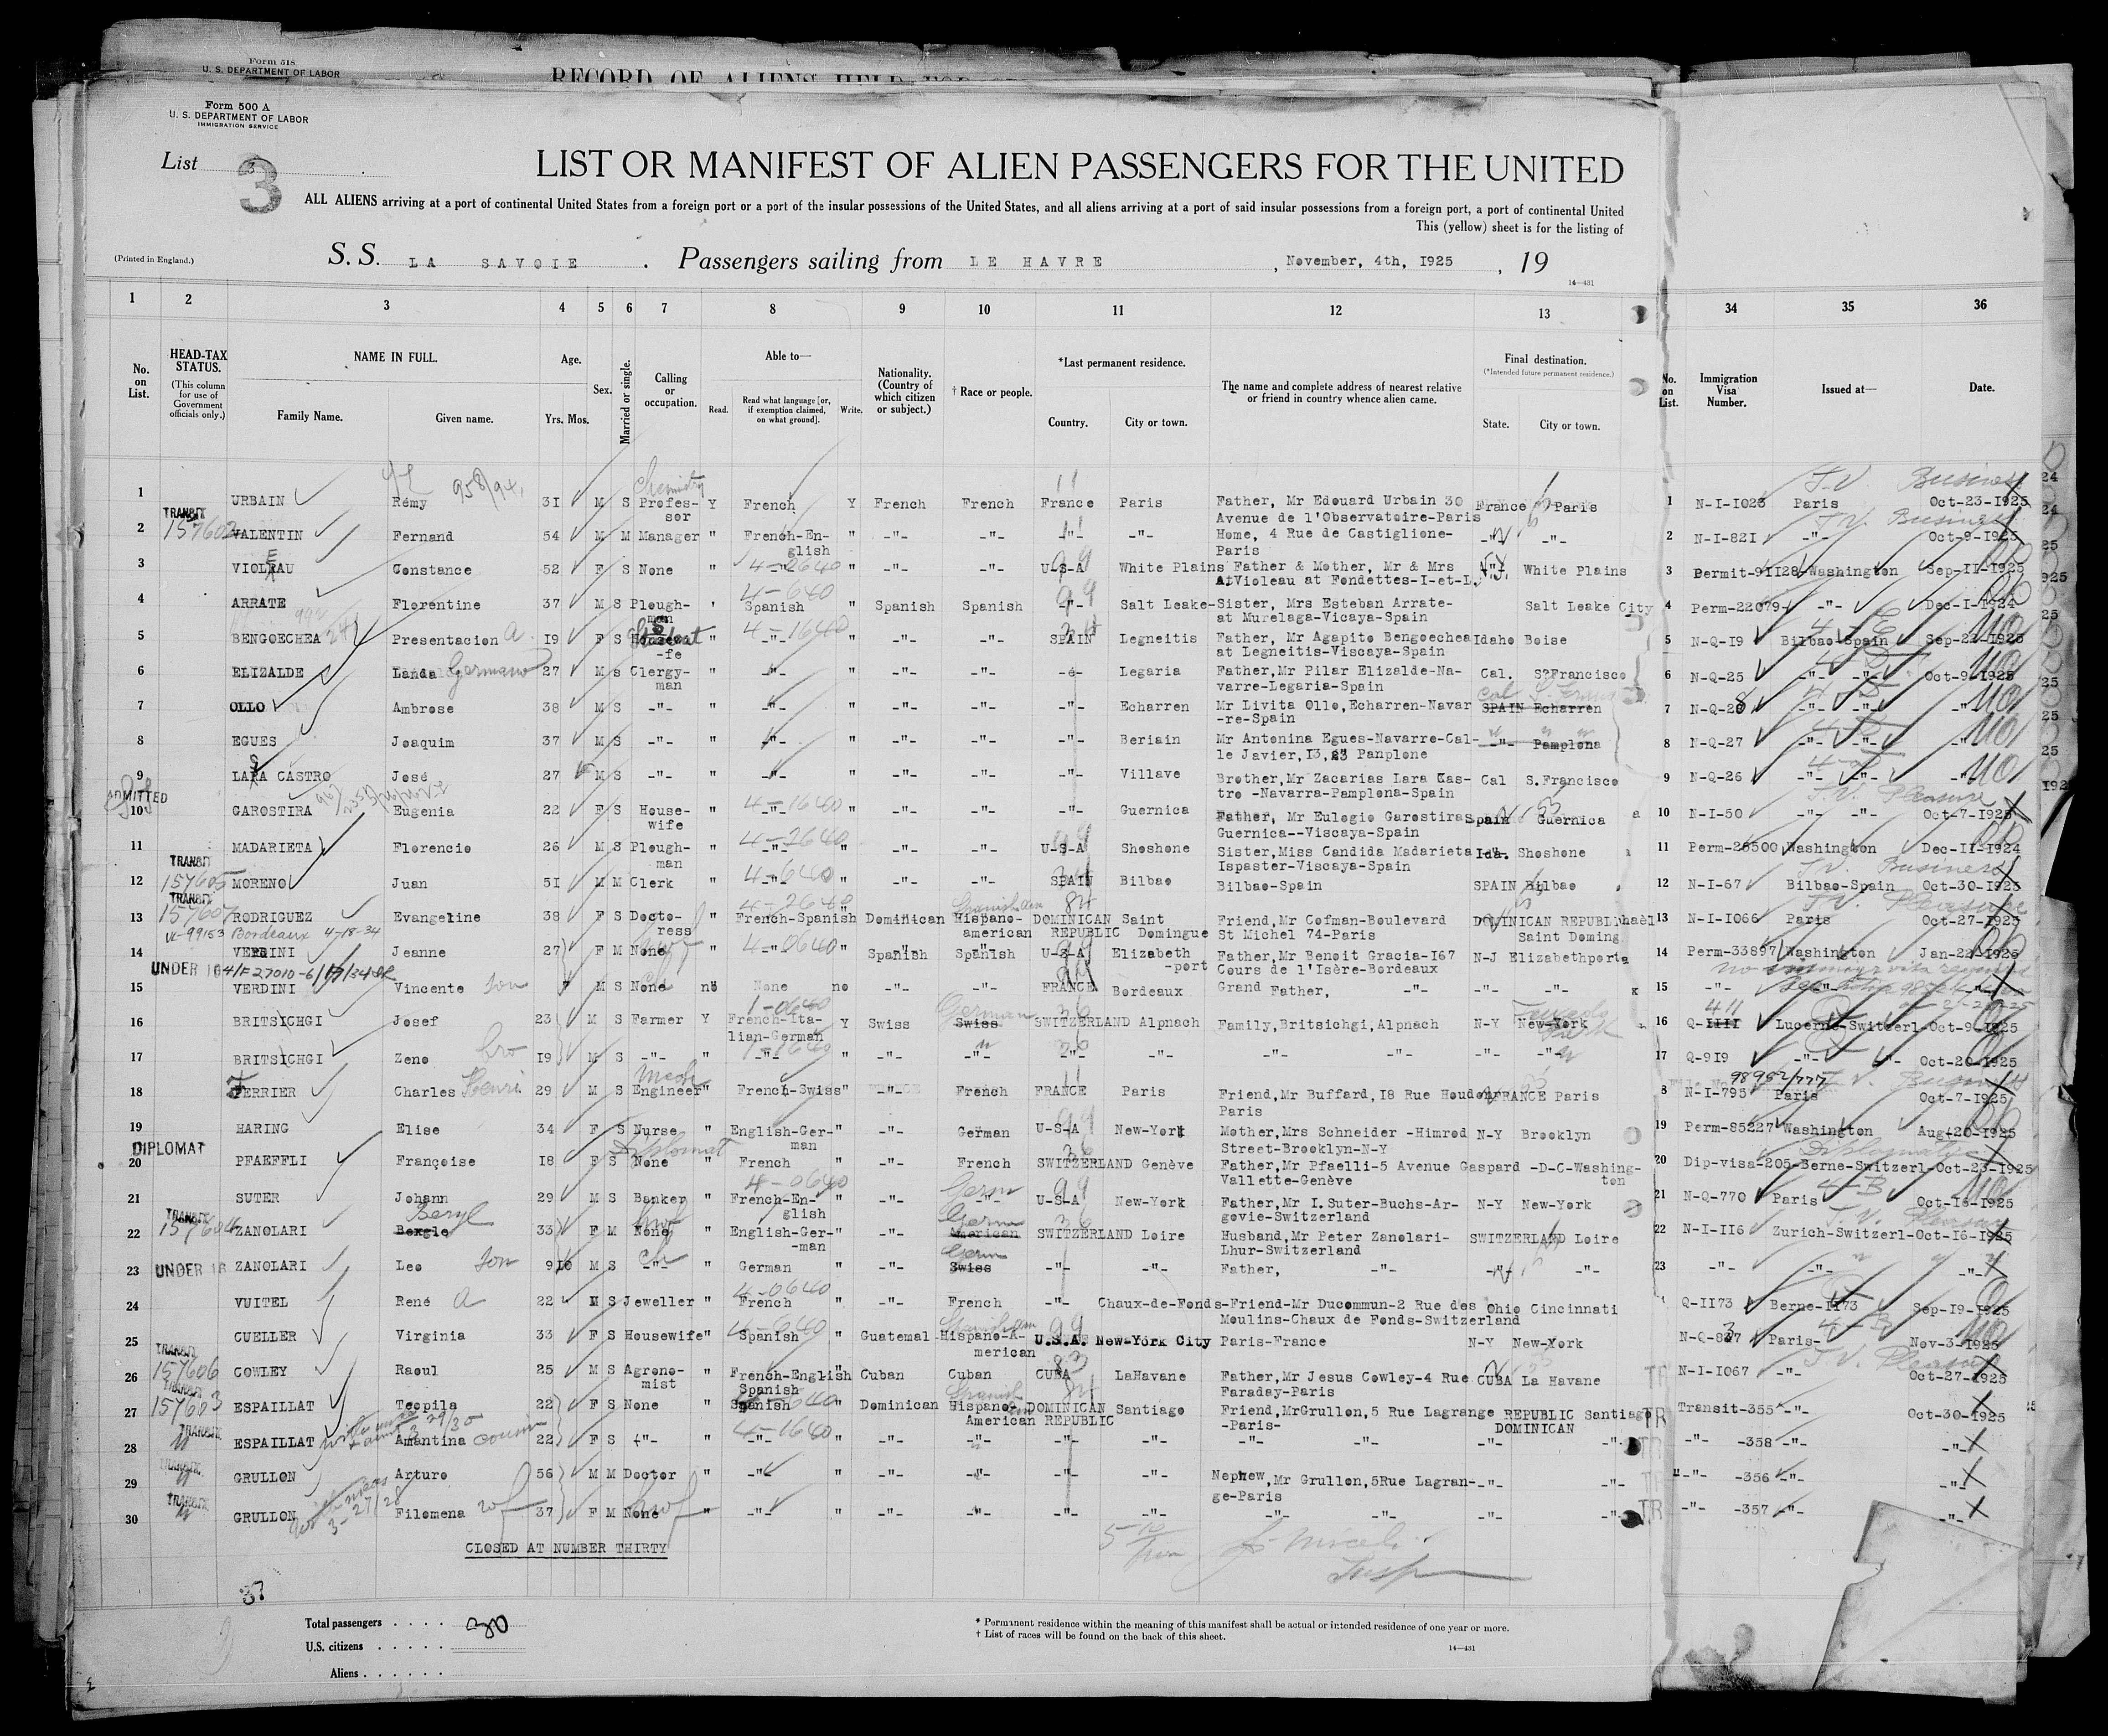 Form 518
U. S. DEPARTMENT OF LABOR
RECORD OF ALIENS HELD
Form 500 A
U. S. DEPARTMENT OF LABOR
IMMIGRATION SERVICE
List 3
3
LIST OR MANIFEST OF ALIEN PASSENGERS FOR THE UNITED
ALL ALIENS arriving at a port of continental United States from a foreign port or a port of the insular possessions of the United States, and all aliens arriving at a port of said insular possessions from a foreign port, a port of continental United
This (yellow) sheet is for the listing of
(Printed in England.)
S. S. LA SAVOIE . Passengers sailing from LE HAVRE , November, 4th, 1925 , 19
14—431
1 2 3 4 5 6 7 8 9 10 11 12 13 34 35 36
No. on List. HEAD-TAX STATUS. (This column for use of Government officials only.) NAME IN FULL. Family Name. Given name. Age. Yrs. Mos. Sex. Married or single. Calling or occupation. Able to— Read. Read what language [or, if exemption claimed, on what ground]. Write. Nationality. (Country of which citizen or subject.) † Race or people. *Last permanent residence. Country. City or town. The name and complete address of nearest relative or friend in country whence alien came. Final destination. (*Intended future permanent residence.) State. City or town. No. on List. Immigration Visa Number. Issued at— Date.
T.V. Business
1 URBAIN Rémy 31 M S Chemistry Profes-sor Y French Y French French France Paris Father, Mr Edouard Urbain 30 Avenue de l'Observatoire-Paris France Paris 1 N-I-1023 Paris Oct-23-1925
TRANSIT 157602
T.V. Business
2 VALENTIN Fernand 54 M M Manager " French-En-glish " -"- -"- -"- -"- Home, 4 Rue de Castiglione-Paris -"- -"- 2 N-I-821 -"- Oct-9-1925
3 VIOLEAU Constance 52 F S None " 4-2640 -"- " -"- -"- U-S-A White Plains Father & Mother, Mr & Mrs A.Violeau at Fondettes-I-et-L. N.Y. White Plains 3 Permit-91128 Washington Sep-11-1925
4 ARRATE Florentine 37 M S Plough-man ' 4-640 Spanish " Spanish Spanish -"- Salt Leake- Sister, Mrs Esteban Arrate-at Murelaga-Vicaya-Spain Salt Leake City 4 Perm-22079 -"- Dec-1-1924
5 BENGOECHEA Presentacion A. 19 F S House-fe " 4-1640 -"- " -"- -"- SPAIN Legneitis Father, Mr Agapito Bengoechea at Legneitis-Viscaya-Spain Idaho Boise 5 N-Q-19 Bilbao-Spain Sep-22-1925
6 ELIZALDE Landa Germano 27 M S Clergy-man " -"- " -"- -"- -"- Legaria Father,Mr Pilar Elizalde-Na-varre-Legaria-Spain Cal. S?Francisco 6 N-Q-25 -"- -"- Oct-9-1925
7 OLLO Ambrose 38 M S -"- " -"- " -"- -"- -"- Echarren Mr Livita Ollo,Echarren-Navar-re-Spain Cal S. Fran SPAIN Echarren 7 N-Q-28 -"- -"- -"-
8 EGUES Joaquim 37 M S -"- " -"- " -"- -"- -"- Beriain Mr Antonina Egues-Navarre-Cal-le Javier,13, Panplone -"- Pamplona 8 N-Q-27 -"- -"- -"-
9 LASA CASTRO José 27 M S -"- " -"- " -"- -"- -"- Villave Brother,Mr Zacarias Lara Kas-tro -Navarra-Pamplona-Spain Cal S.Francisco 9 N-Q-26 -"- -"- -"-
ADMITTED
T.V. Pleasure
10 GAROSTIRA Eugenia 22 F S House-wife " 4-1640 -"- " -"- -"- -"- Guernica Father, Mr Eulogio Garostiras Guernica--Viscaya-Spain Spain Guernica 10 N-I-50 -"- -"- Oct-7-1925
11 MADARIETA Florencio 26 M S Plough-man " 4-2640 -"- " -"- -"- U-S-A Shoshone Sister,Miss Candida Madarieta Ispaster-Viscaya-Spain Ida. Shoshone 11 Perm-28500 Washington Dec-11-1924
TRANSIT 157605
T.V. Business
12 MORENO Juan 51 M M Clerk " 4-640 -"- " -"- -"- SPAIN Bilbao Bilbao-Spain SPAIN Bilbao 12 N-I-67 Bilbao-Spain Oct-30-1925
TRANSIT 157607
T.V. Pleasure
13 RODRIGUEZ Evangeline 38 F S Docto-ress " 4-2640 French-Spanish " Dominican Hispano-american DOMINICAN REPUBLIC Saint Domingue Friend,Mr Cofman-Boulevard St Michel 74-Paris DOMINICAN REPUBLI Saint Doming 13 N-I-1066 Paris Oct-27-1925
Bordeaux 4-18-34
14 VERDINI Jeanne 27 F M None " 4-0640 -"- " Spanish Spanish U-S-A Elizabeth-port Father,Mr Benoit Gracia-167 Cours de l'Isère-Bordeaux N-J Elizabethport 14 Perm-33897 Washington Jan-22-1925
UNDER 16
15 VERDINI Vincente Son M S None no None no -"- -"- FRANCE Bordeaux Grand Father, -"- -"- -"- 15 -"- -"- -"-
16 BRITSCHGI Josef 23 M S Farmer Y 1-0640 French-Ita-lian-German Y Swiss German Swiss SWITZERLAND Alpnach Family,Britsichgi,Alpnach N-Y New-York 16 Q-1111 411 Lucerne-Switzerl-Oct-9-1925
17 BRITSCHGI Zeno bro 19 M S -"- " -"- " -"- -"- -"- -"- -"- -"- -"- -"- 17 Q-919 -"- -"- Oct-20-1925
98952/777 T.V. Business
18 FERRIER Charles Henri 29 M S Mech Engineer " French-Swiss " -"- French FRANCE Paris Friend,Mr Buffard,18 Rue Houdon Paris FRANCE Paris 8 N-I-795 Paris Oct-7-1925
19 HARING Elise 34 F S Nurse " English-Ger-man " -"- German U-S-A New-York Mother,Mrs Schneider -Himrod Street-Brooklyn-N-Y N-Y Brooklyn 19 Perm-85227 Washington Aug-20-1925
DIPLOMAT
20 PFAEFFLI Françoise 18 F S Diplomat None " French " -"- French SWITZERLAND Genève Father,Mr Pfaelli-5 Avenue Gaspard Vallette-Genève -D-C-Washing-ton 20 Dip-visa-205-Berne-Switzerl-Oct-23-1925
21 SUTER Johann 29 M S Banker " 4-0640 French-En-glish " -"- Germ -"- U-S-A New-York Father,Mr I.Suter-Buchs-Ar-govie-Switzerland N-Y New-York 21 N-Q-770 Paris 4-B Oct-16-1925
TRANSIT 157604
T.V. Pleasure
22 ZANOLARI Beryl Bexgle 33 F M None " English-Ger-man " -"- Germ American SWITZERLAND Loire Husband,Mr Peter Zanolari-Lhur-Switzerland SWITZERLAND Loire 22 N-I-116 Zurich-Switzerl-Oct-16-1925
UNDER 16
23 ZANOLARI Leo Son 9 10 M S -"- " German " -"- Germ Swiss -"- -"- Father, -"- -"- -"- 23 -"- -"- -"-
24 VUITEL René A 22 M S Jeweller " 4-0640 French " -"- French -"- Chaux-de-Fonds- Friend-Mr Ducommun-2 Rue des Moulins-Chaux de Fonds-Switzerland Ohio Cincinnati Q-1173 Berne-1173 Sep-19-1925
25 CUELLER Virginia 33 F S Housewife " 4-640 Spanish " Guatemal Hispano-A-merican U.S.A. New-York City Paris-France N-Y New-York N-Q-837 Paris- 4-B Nov-3-1925
TRANSIT 157606
T.V. Pleasure
26 COWLEY Raoul 25 M S Agrono-mist " French-English Spanish " Cuban Cuban CUBA LaHavane Father,Mr Jesus Cowley-4 Rue Faraday-Paris CUBA La Havane TR N-I-1067 -"- Oct-27-1925
TRANSIT 157603
27 ESPAILLAT Teopila 22 F S None " Spanish " Dominican Hispano-American DOMINICAN REPUBLIC Santiago Friend,MrGrullon,5 Rue Lagrange -Paris- REPUBLIC DOMINICAN Santiago TR Transit-355 -"- Oct-30-1925
TRANSIT
28 ESPAILLAT Amantina cousin 22 F S -"- " 4-1640 -"- " -"- -"- -"- -"- -"- -"- -"- -"- TR -"- -358 -"- -"-
TRANSIT
29 GRULLON Arturo 56 M M Doctor " -"- " -"- -"- -"- -"- Nephew,Mr Grullon,5Rue Lagran-ge-Paris -"- -"- TR -"- -356 -"- -"-
TRANSIT
30 GRULLON Filomena wf 37 F M None " -"- " -"- -"- -"- -"- -"- -"- -"- -"- TR -"- -357 -"- -"-
CLOSED AT NUMBER THIRTY
37
Total passengers . . . . 30
U.S. citizens . . . . .
Aliens . . . . . .
* Permanent residence within the meaning of this manifest shall be actual or intended residence of one year or more.
† List of races will be found on the back of this sheet.
14—431